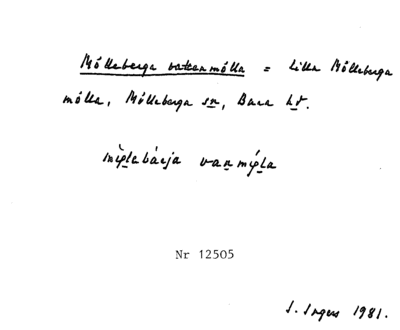 Mölleberga vattenmölla = Lilla Mölleberga
mölla, Mölleberga sn, Bara hd.
vanmøla
Nr 12505
S. Ingers 1981.